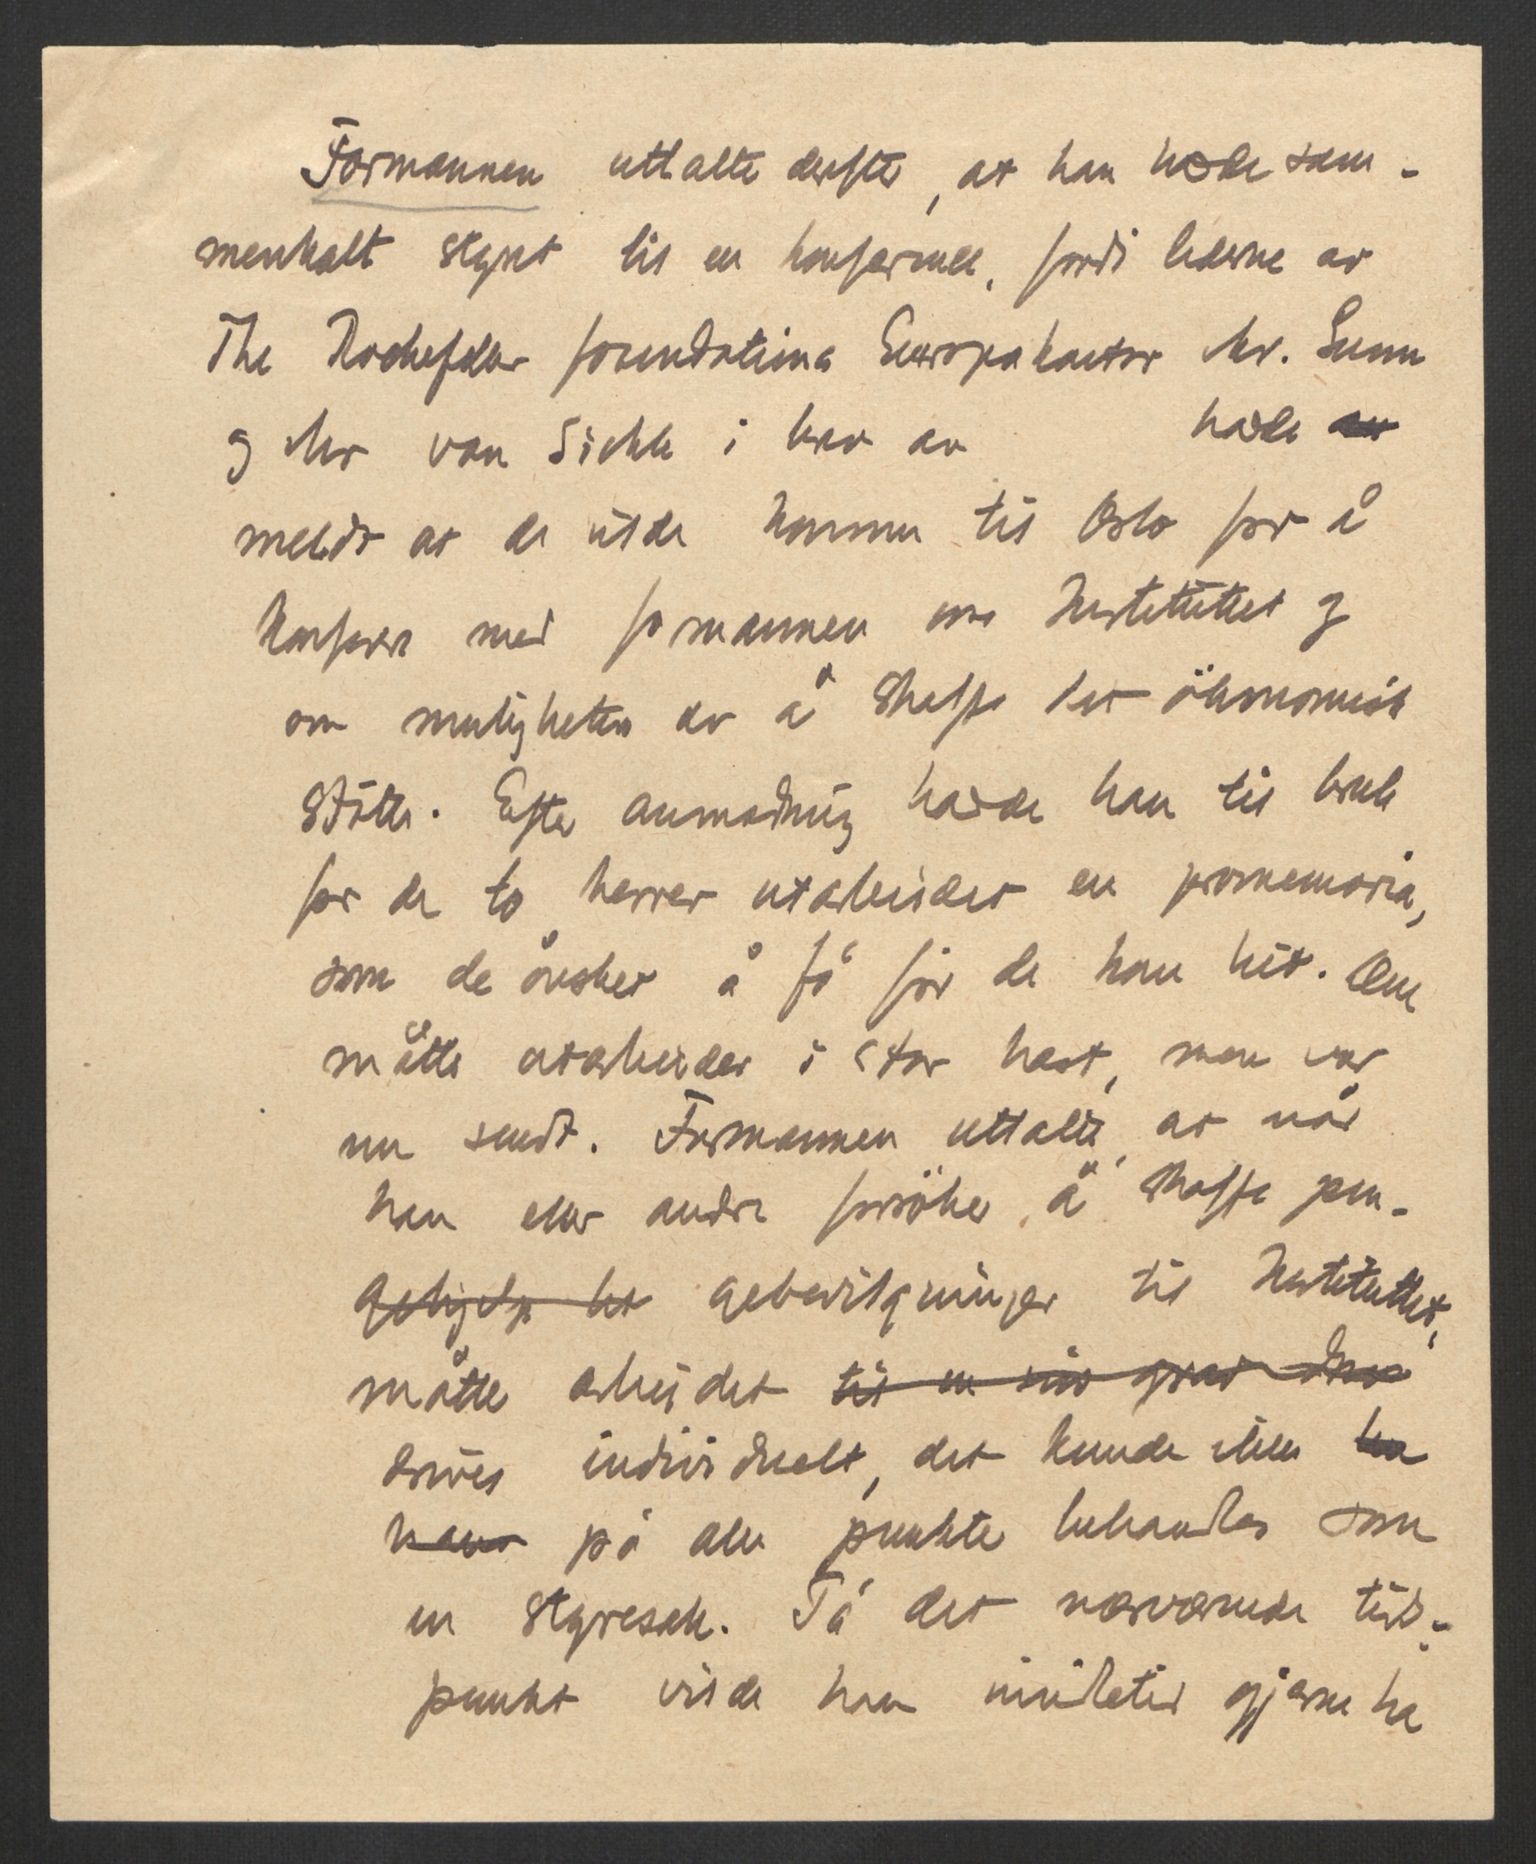 Formannen uttalte derefter, at han hadde sam-
menkalt styret til en konferanse, fordi lederne av
The Rockefeller foundations Europakontor Mr. Gunn
og Mr van Sickle i brev av hadde
meldt at de vilde komme til Oslo for å
konferere med formannen om Instituttet og
om muligheten av å skaffe det økonomisk
støtte. Efter anmodning hadde han til bruk
for de to herrer utarbeidet en promemoria,
som de ønsket å få før de kom hit. Den
måtte utarbeides i stor hast, men var
nu sendt. Formannen uttalte, at når
han eller andre forsøker å skaffe pen-
gehjelp til gebevilgninger til Instituttet,
måtte arbeidet til en viss grad drives
drives individuelt, det kunde ikke ha
hans på alle punkter behandles som
en styresak. På det nærværende tids-
punkt vilde han imidlertid gjerne ha